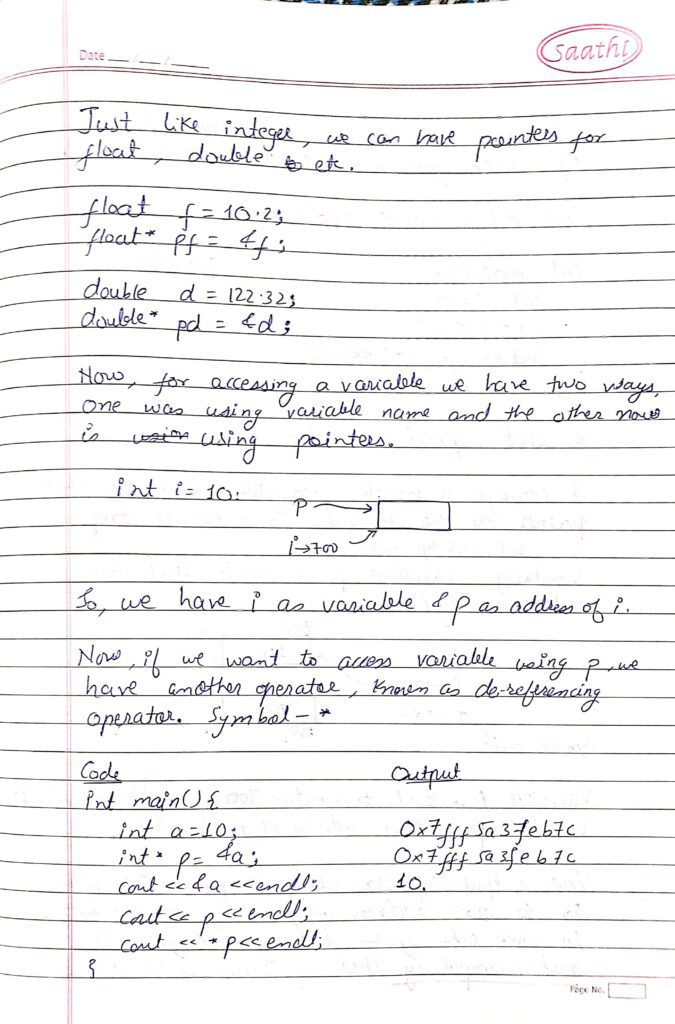 Date __/__/____
Saathi
Just like integer, we can have pointers for
float, double etc.
float f = 10.2;
float* pf = &f;
double d = 122.32;
double* pd = &d;
Now, for accessing a variable we have two ways,
one was using variable name and the other now
is using pointers.
int i = 10;
P
i→700
So, we have i as variable & p as address of i.
Now, if we want to access variable using p, we
have another operator, known as de-referencing
operator. Symbol - *
Code Output
int main() {
int a=10; 0x7fff5a3feb7c
int* p= &a; 0x7fff5a3feb7c
cout << &a <<endl; 10.
cout << p <<endl;
cout << *p<<endl;
}
Page No.